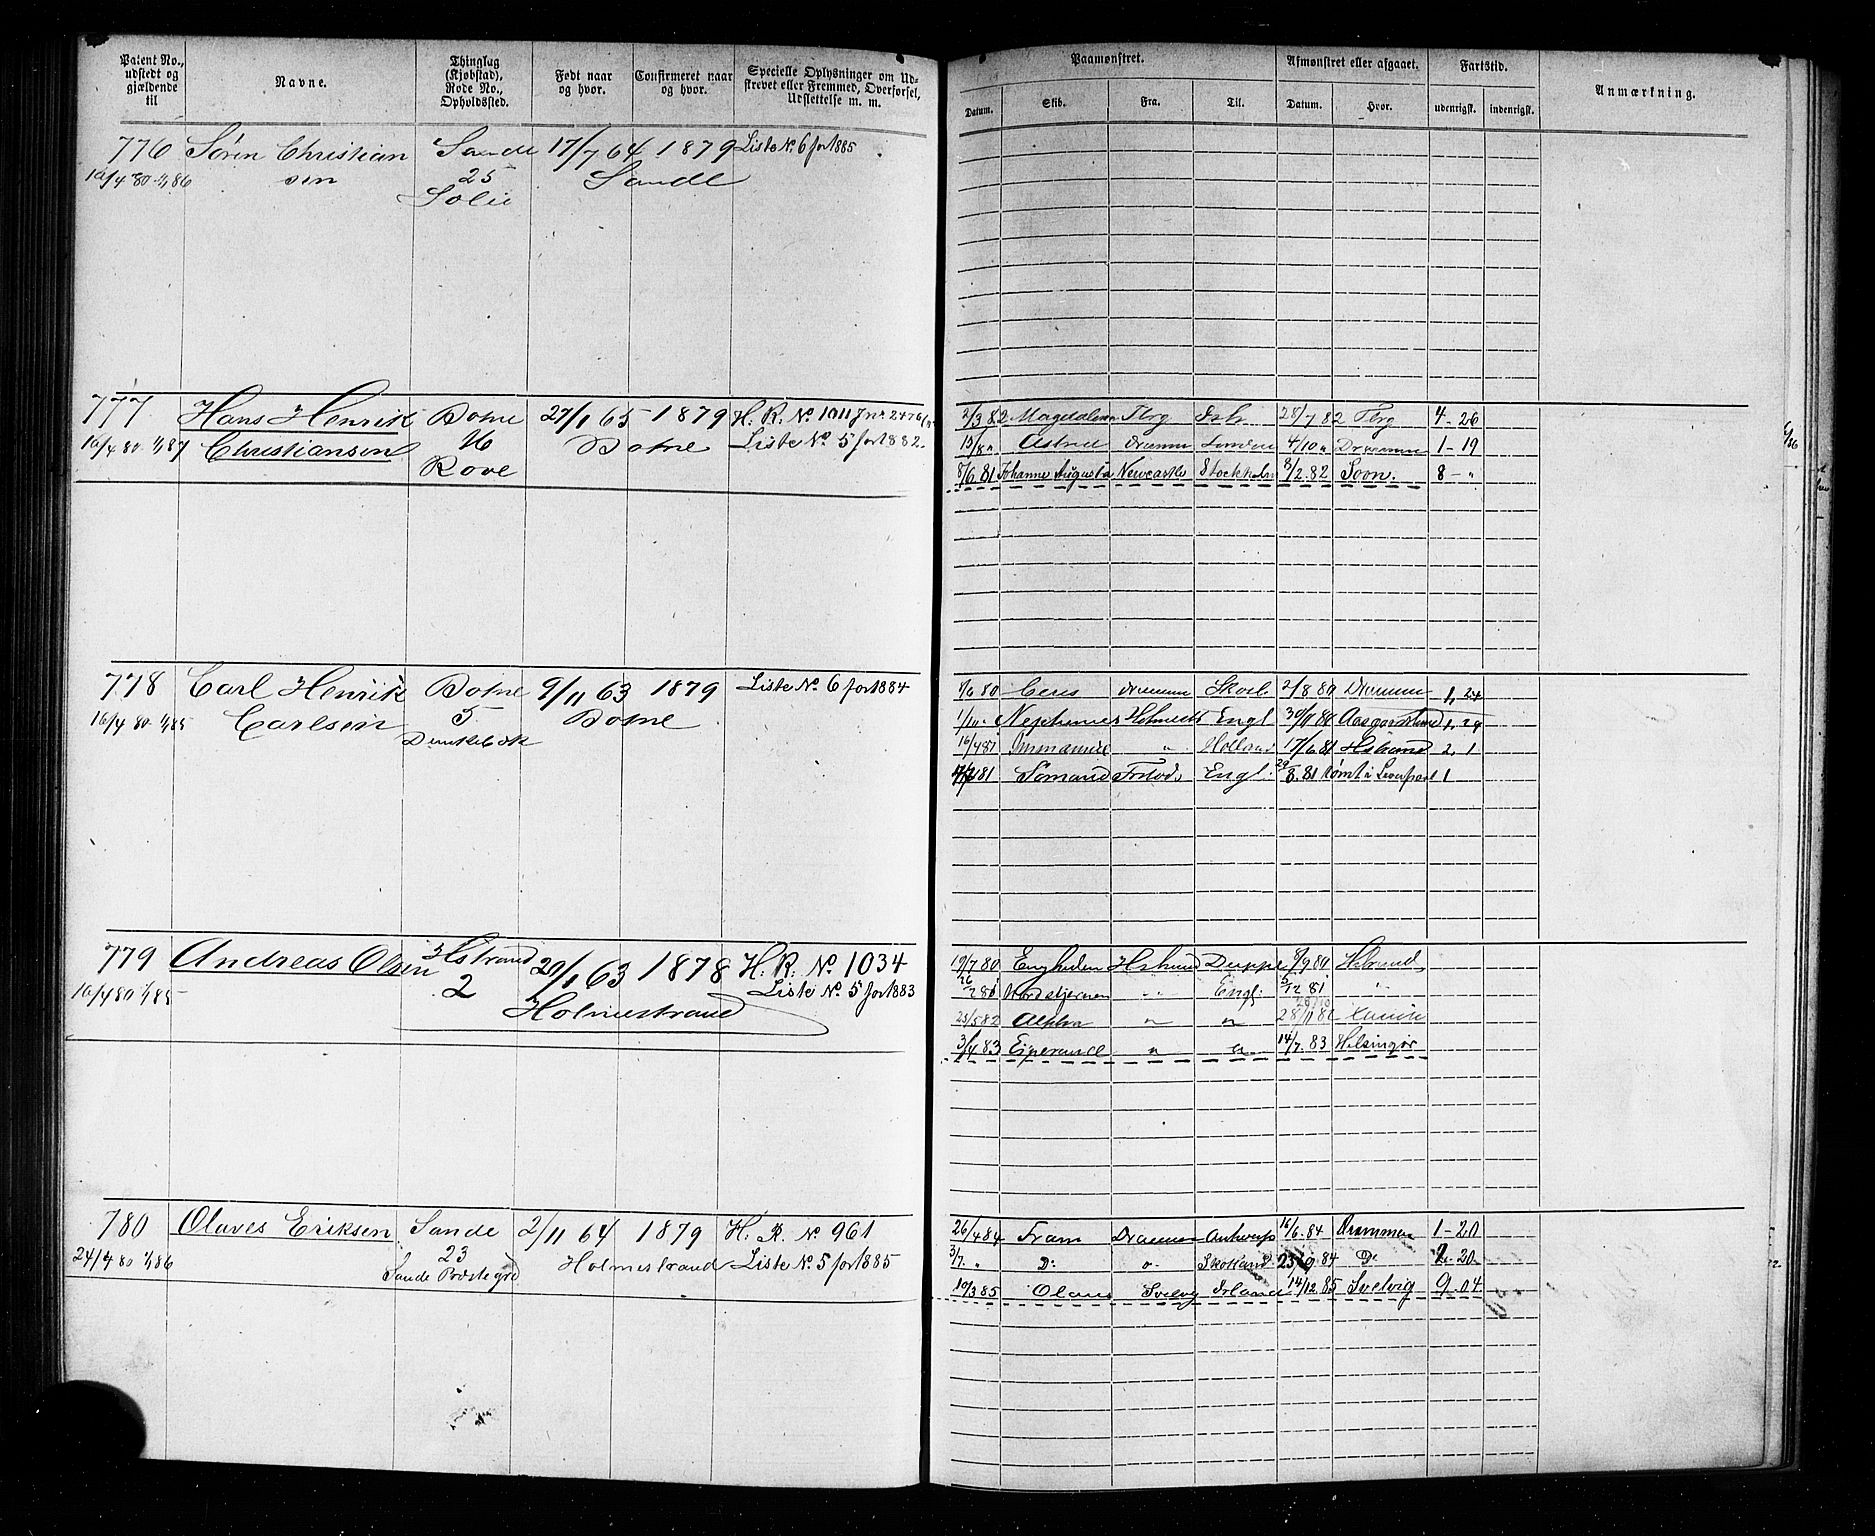 Patent No., udstedt og gjældende til
Navne.
Thinglag (Kjøbstad), Rode No., Opholdssted.
Født naar og hvor.
Confirmeret naar og hvor.
Specielle Oplysninger om Udskrevet eller Fremmed, Overførsel, Udslettelse m. m.
Paamønstret.
Afmønstret eller afgaaet.
Fartstid.
Anmærkning.
Datum. Skib. Fra. Til. Datum. Hvor. udenrigsk. indenrigsk.
776 Søren Christian Sande 17/7 64 1879 Liste No. 6 for 1885
16/4 80 1/1 86 sen 25 Sande
Solie
777 Hans Henrik Botne 27/1 65 1879 H. R. No 1011
16/4 80 1/1 87 Christiansen 16 Botne Liste No 5 for 1882.
Rove
2/3 82 Magdalena Tbrg 28/7 82 Tbrg 4-26
13/8 " Astrea Dramm London 4/10 " Drammen 1-19
8/6 81 Johanne Augusta Newcastle Stockholm 8/2.82 Soon. 8 - "
778 Carl Henrik Botne 9/11 63 1879 Liste No. 6 for 1884
16/4 80 1/1 85 Carlsen 5 Botne
Ceres Dramm 2/8 80 Dramm 1, 24
1/10 Neptunus Engl 30/11 80 Aasgaardstrand 1, 29
16/4 81 " Holland 17/6 81 Hstrand 2, 1
81 Engl. 29/8.81 rømt i Liverpool 1
779 Andreas Olsen Hstrand 29/1 63 1878 H. R. No 1034
16/4 80 1/1 85 2 Holmestrand Liste No. 5 for 1883
19/7 80 Hstrand 9/9 80 Hstrand
Nordstjernen Engl.
25/5 82 Alpha " "
3/4 83 Esperance " " 14/7. 83 Helsingør
780 Olaves Eriksen Sande 2/11 64 1879 H. R. No 961
24/4 80 1/1 86 23 Holmestrand Liste No. 5 for 1885
Sande Præstegrd
26/4 84 Fram Drammen Antwerp 16/6.84 Drammen 1-20
3/7. " Do " Skotland 84 Do 2-20
10/3 85 Olaus Svelvig Irland 14/12.85 Svelvig 9-04